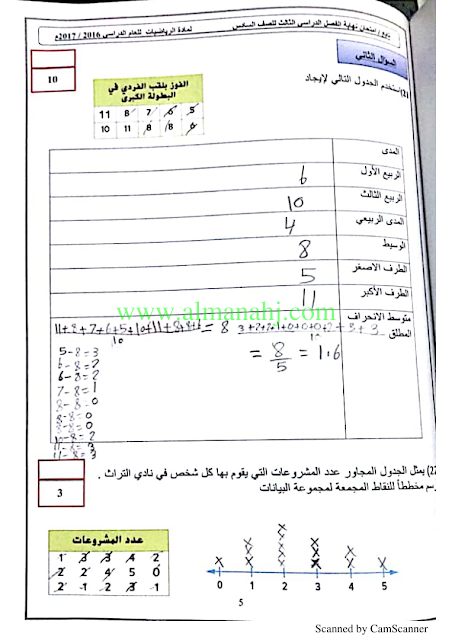 تابع / امتحان نهاية الفصل الدراسي الثالث للصف السادس لمادة الرياضيات للعام الدراسي 2016 / 2017م
السؤال الثاني
10
21) أستخدم الجدول التالي لإيجاد
الفوز بلقب الفردي في
البطولة الكبرى
11 8 7 6 5
10 11 8 8 6
المدى
الربيع الأول 6
الربيع الثالث 10
المدى الربيعي 4
الوسيط 8
الطرف الأصغر 5
الطرف الأكبر 11
www.almanahj.com
متوسط الانحراف
المطلق
= 8/5 = 1.6
5-8=3
6-8=2
6-8=2
7-8=1
8-8=0
8-8=0
8-8=0
10-8=2
11-8=3
11-8=3
22) يمثل الجدول المجاور عدد المشروعات التي يقوم بها كل شخص في نادي التراث .
رسم مخططاً للنقاط المجمعة لمجموعة البيانات
3
عدد المشروعات
1 3 3 4 2
2 2 4 5 0
2 1 2 3 1
0 1 2 3 4 5
5
Scanned by CamScanner